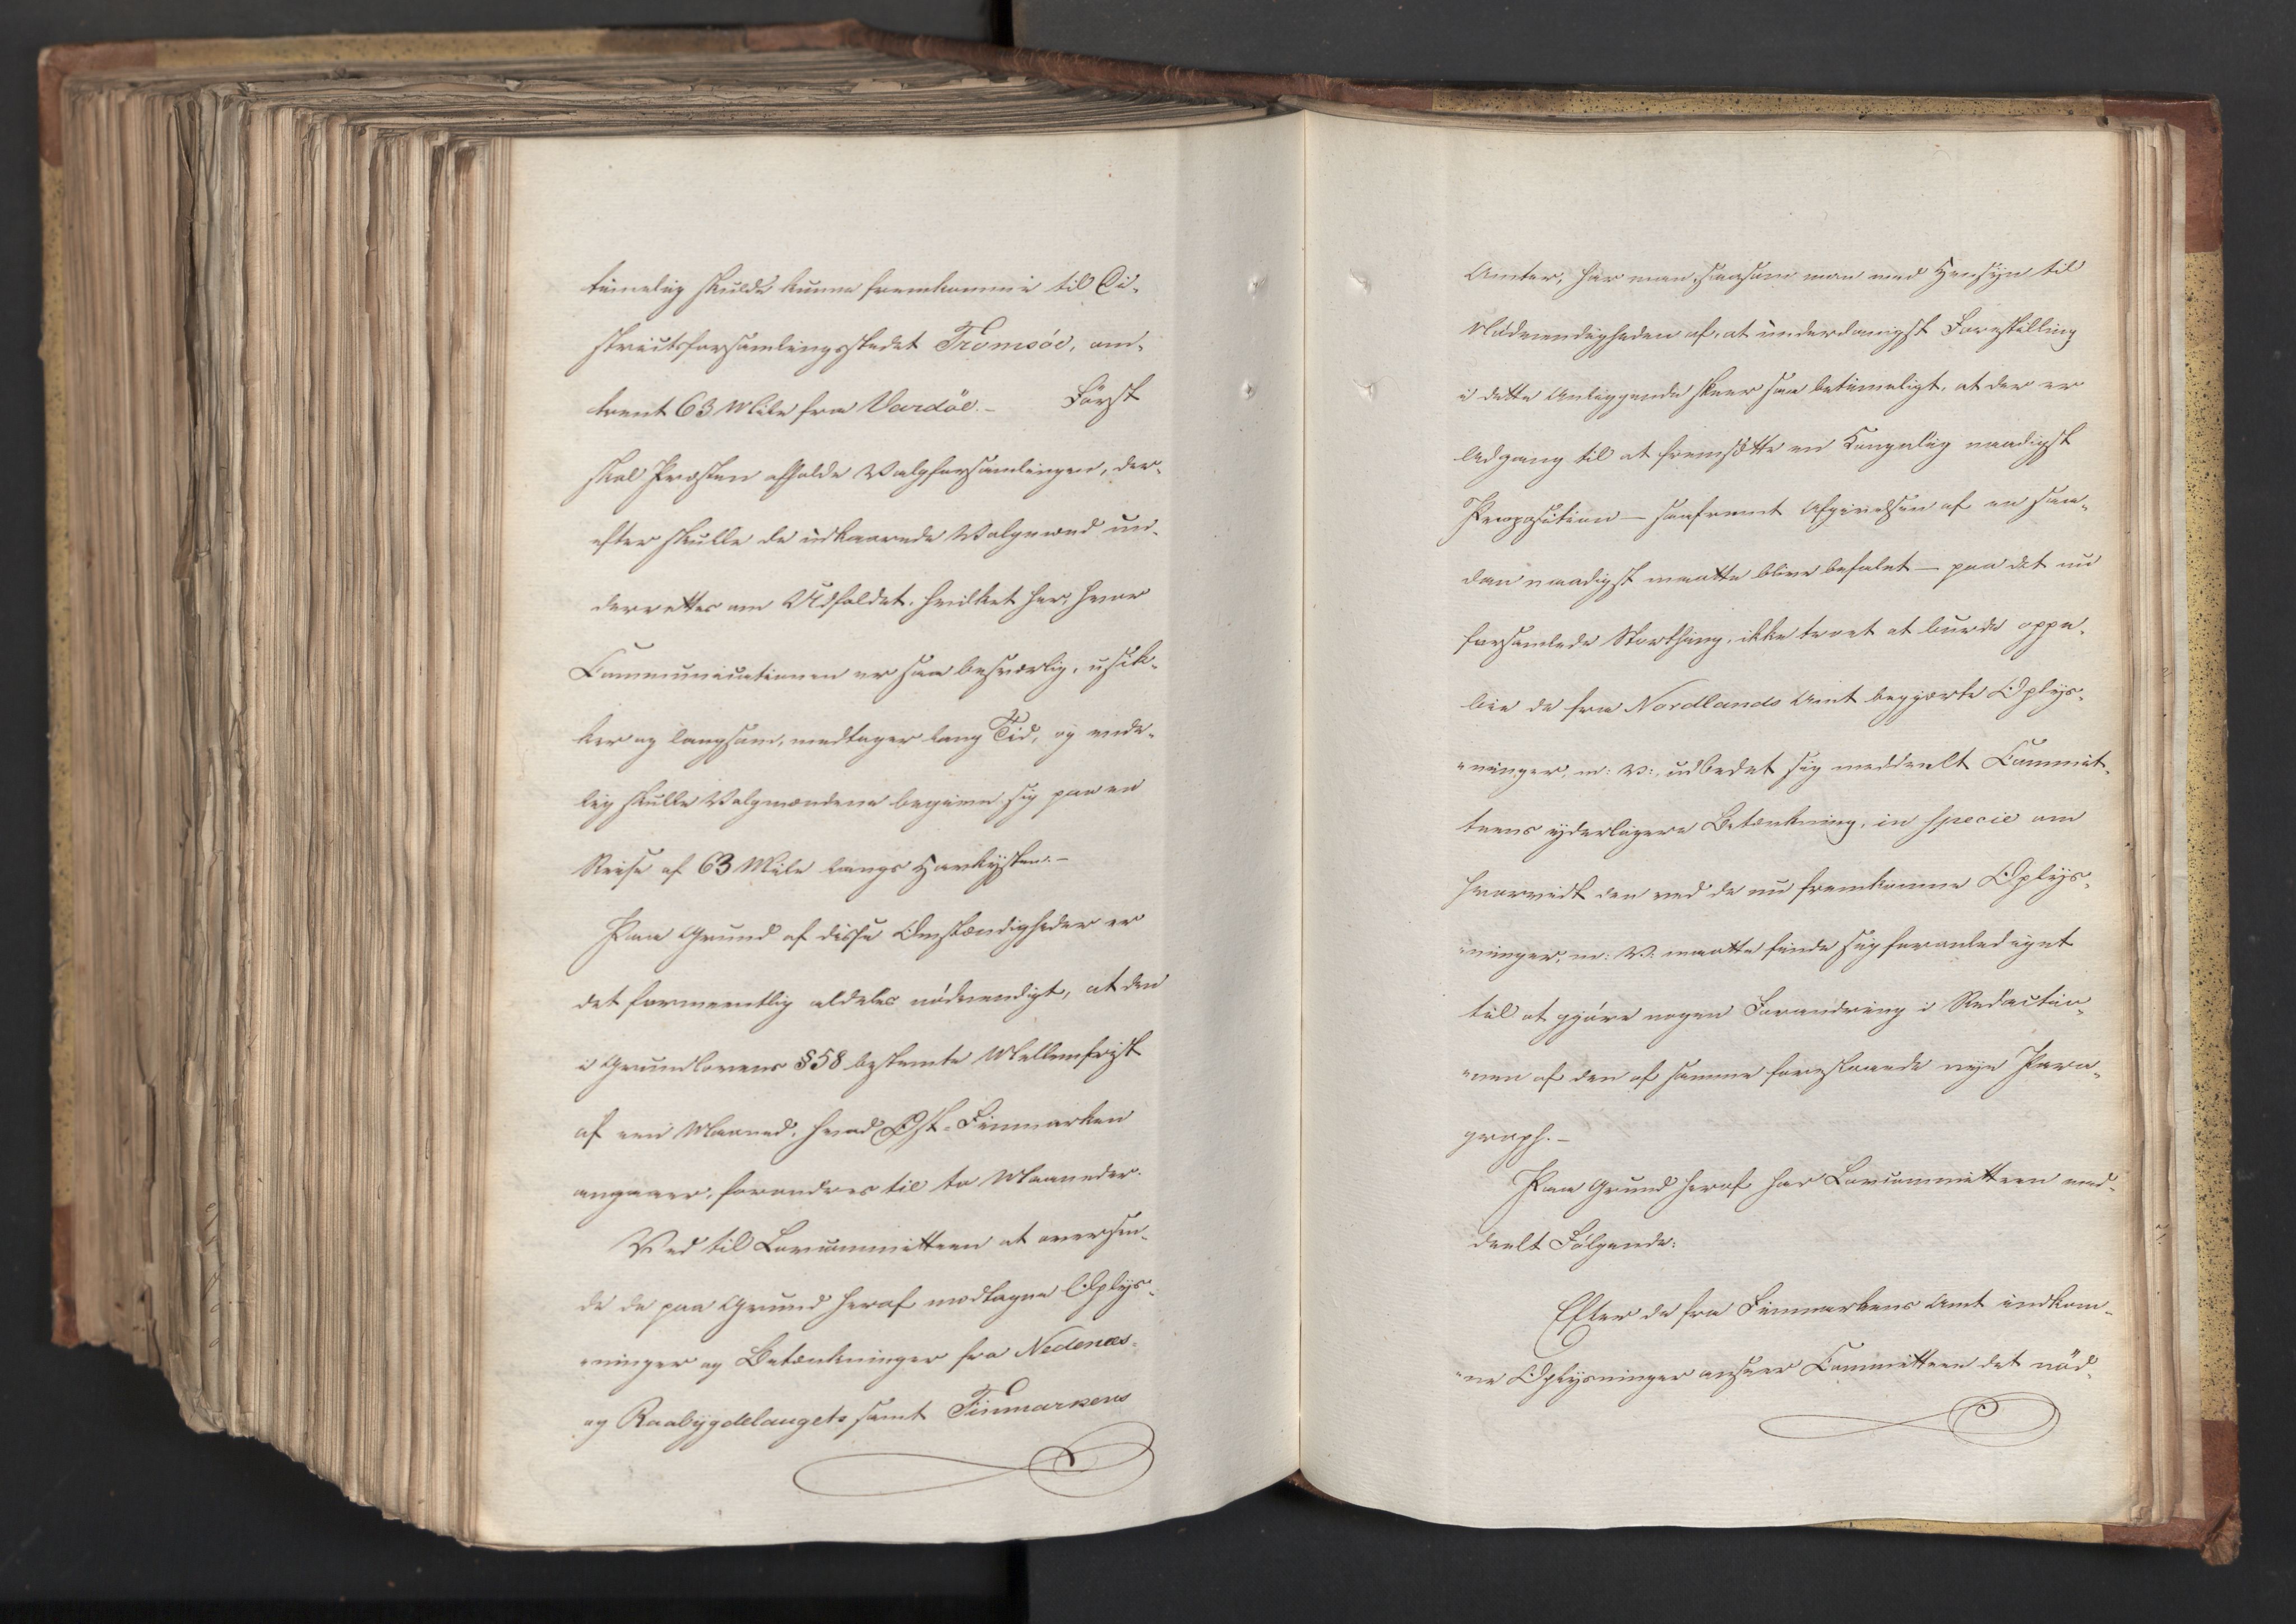 timelig skulde kunne fremkomme til Di-
strictsforsamlingsstedet Tromsöe, om-
trent 63 Mile fra Vardöe. – Först
skal Præsten afholde Valgforsamlingen, der-
efter skulle de udkaarede Valgmænd un-
derrettes om Udfaldet, hvilket her, hvor
Communicationen er saa besværlig, usik-
ker og langsom, medtager lang Tid, og ende-
lig skulle Valgmændene begive sig paa en
Reise af 63 Mile langs Havkysten. –
Paa Grund af disse Omstændigheder er
det formeentlig aldeles nödvendigt, at den
i Grundlovens § 58 bestemte Mellemfrist
af een Maaned, hvad Öst-Finmarken
angaaer, forandres til to Maaneder.
Ved til Lovcommitteen at oversen-
de de paa Grund heraf modtagne Oplys-
"ninger og Betænkninger fra Nedenæs-
og Raabygdelaugets samt Finmarkens
Amter, har man, saasom man med Hensyn til
Nödvendigheden af, at underdanigst Forestilling
i dette Anliggende skeer saa betimeligt, at der er
Adgang til at fremsætte en Kongelig naadigst
Proposition – saafremt Afgivelsen af en saa-
dan naadigst maatte blive befalet – paa det nu
forsamlede Storthing, ikke troet at burde oppe-
bie de fra Nordlands Amt begjærte Oplys-
"ninger, m: V:, udbedet sig meddeelt Commit-
teens yderligere Betænkning, in specie om
hvorvidt den ved de nu fremkomne Oplys-
"ninger, m: V: maatte finde sig foranlediget
til at gjöre nogen Forandring i Redactio-
"nen af den af samme foreslaaede nye Para-
graph. –
Paa Grund heraf har Lovcommitteen med-
deelt Fölgende:
Efter de fra Finmarkens Amt indkom-
"ne Oplysninger anseer Committeen det nöd-